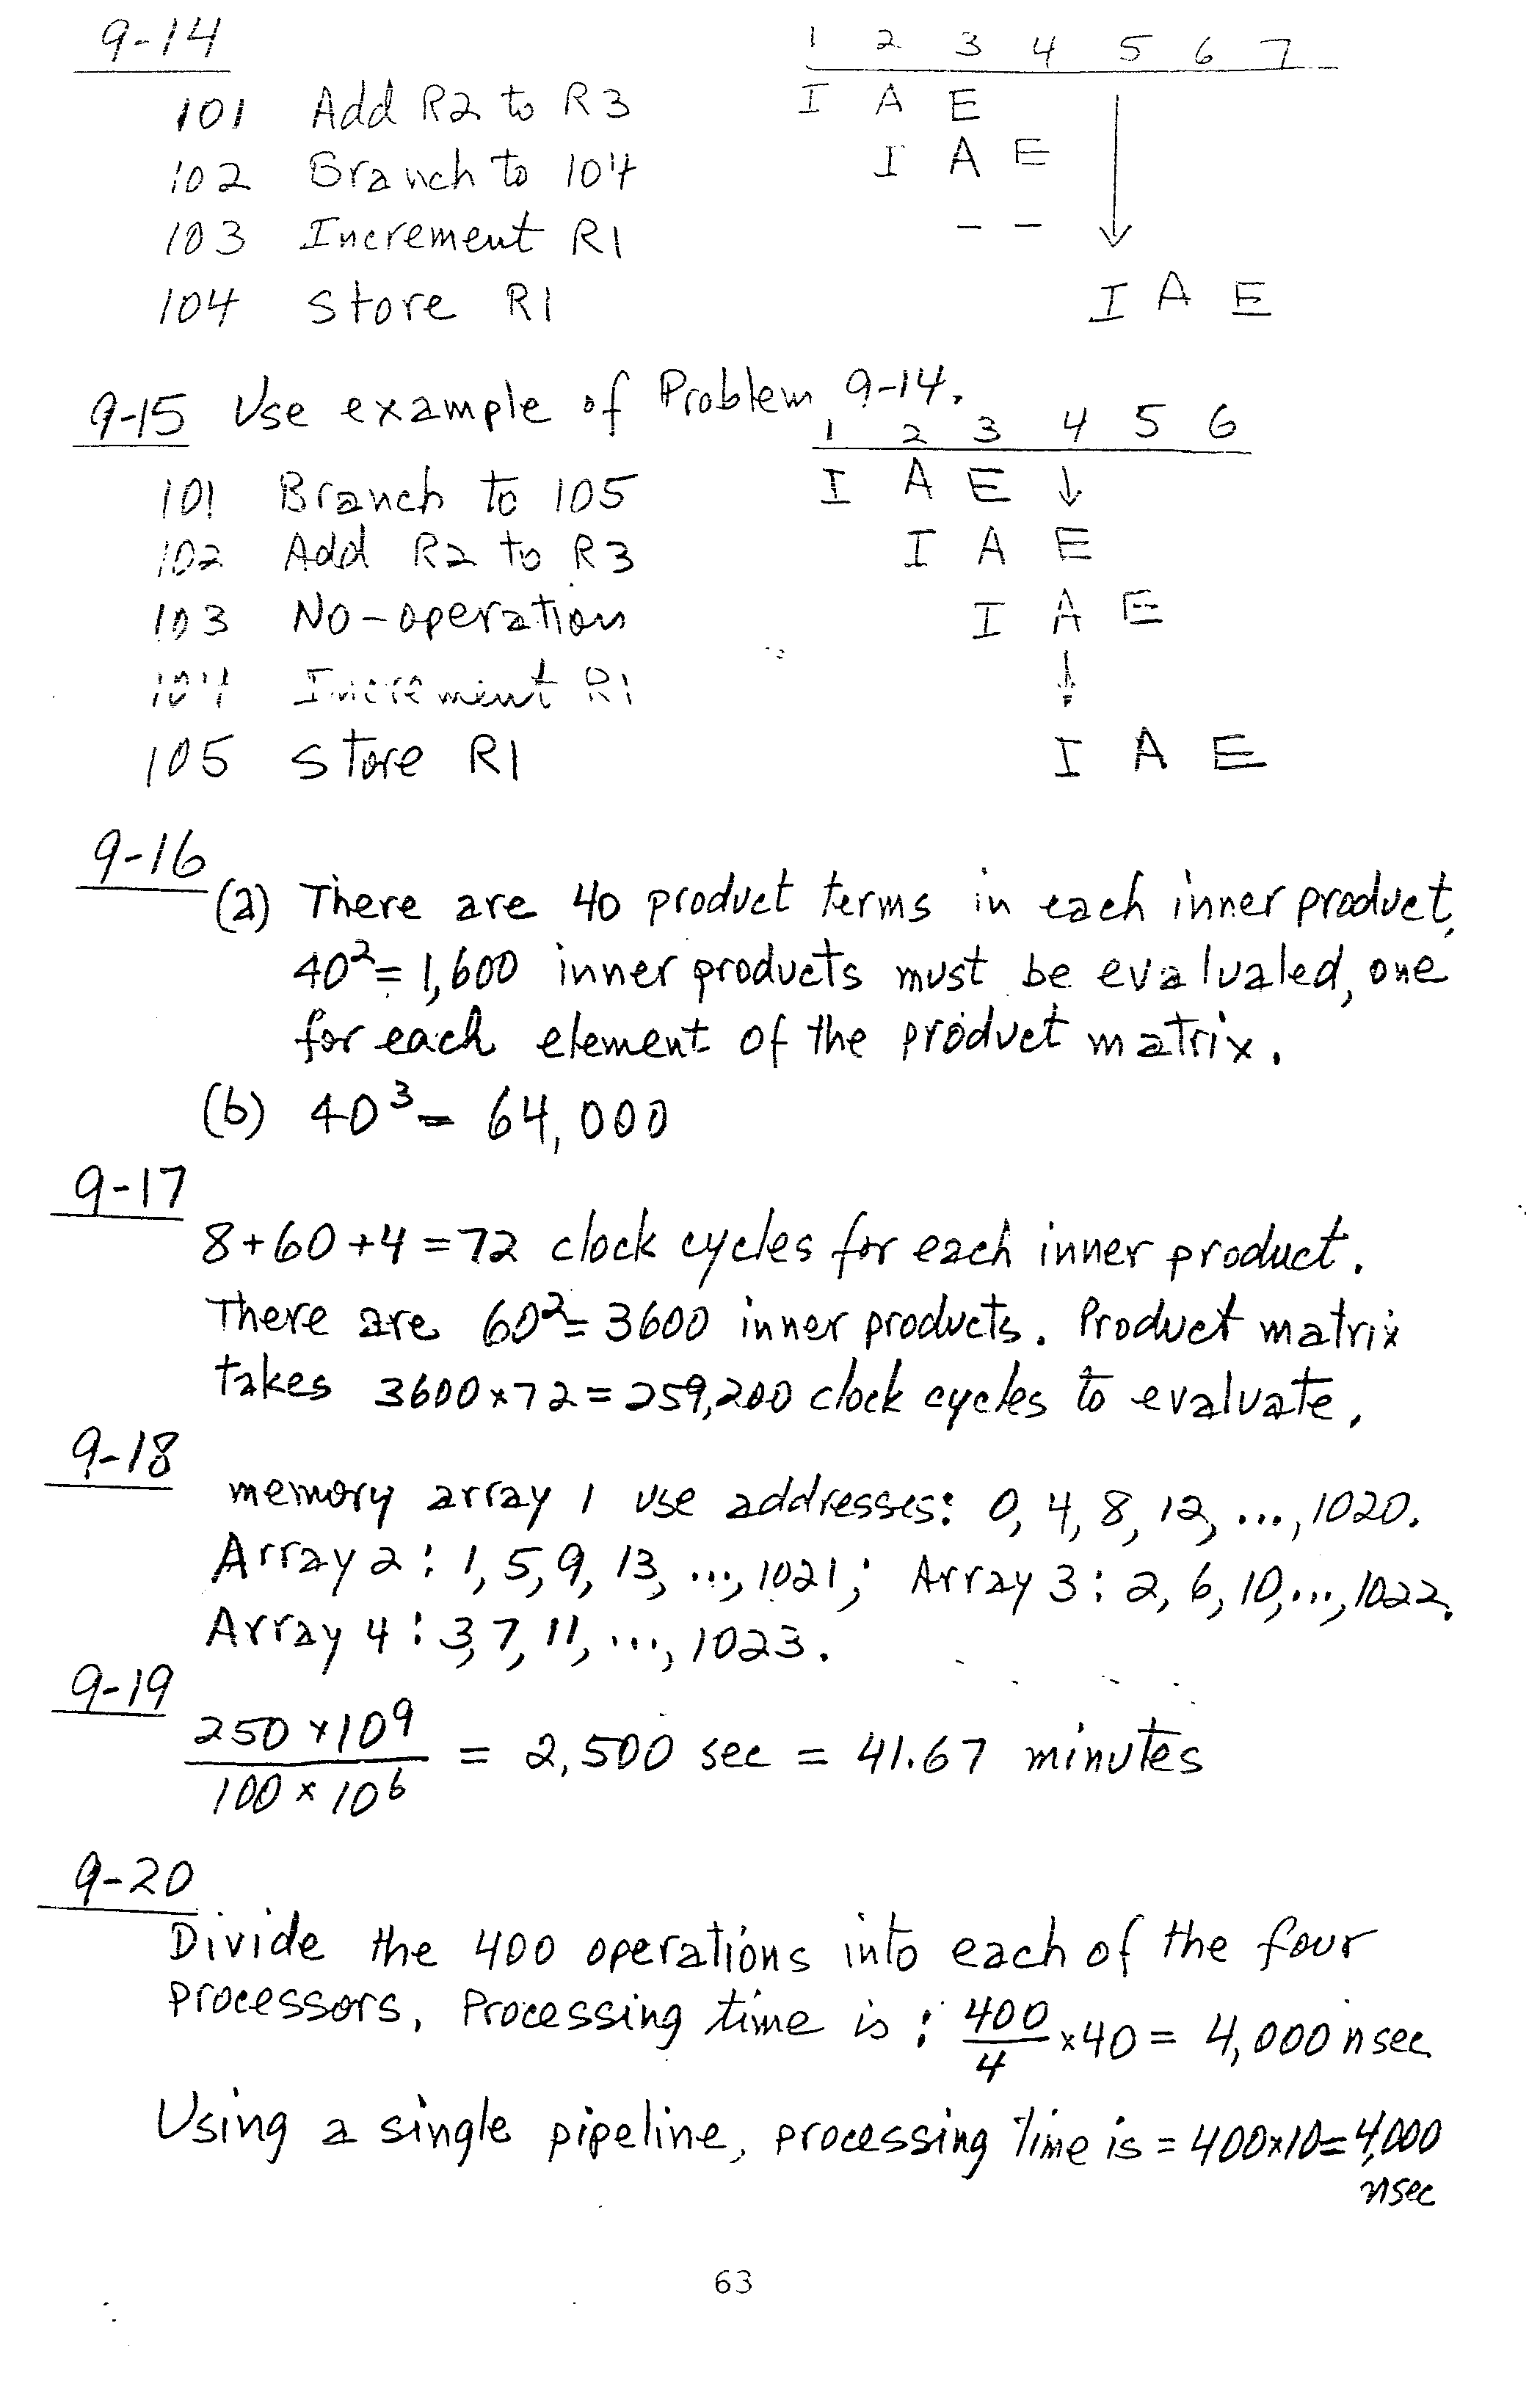 9-14
1 2 3 4 5 6 7
101 Add R2 to R3 I A E
102 Branch to 104 I A E
103 Increment R1 - -
104 Store R1 I A E
9-15 Use example of Problem 9-14.
1 2 3 4 5 6
101 Branch to 105 I A E
102 Add R2 to R3 I A E
103 No-operation I A E
104 Increment R1
105 Store R1 I A E
9-16
(a) There are 40 product terms in each inner product,
40² = 1,600 inner products must be evalualed, one
for each element of the product matrix.
(b) 40³ = 64,000
9-17
8+60+4 = 72 clock cycles for each inner product.
There are 60² = 3600 inner products. Product matrix
takes 3600 × 72 = 259,200 clock cycles to evaluate.
9-18
memory array 1 use addresses: 0, 4, 8, 12, ..., 1020.
Array 2: 1, 5, 9, 13, ..., 1021; Array 3: 2, 6, 10, ..., 1022.
Array 4: 3, 7, 11, ..., 1023.
9-19
250 × 10⁹ / 100 × 10⁶ = 2,500 sec = 41.67 minutes
9-20
Divide the 400 operations into each of the four
processors, Processing time is: 400/4 × 40 = 4,000 nsec.
Using a single pipeline, processing time is = 400×10 = 4,000
nsec
63